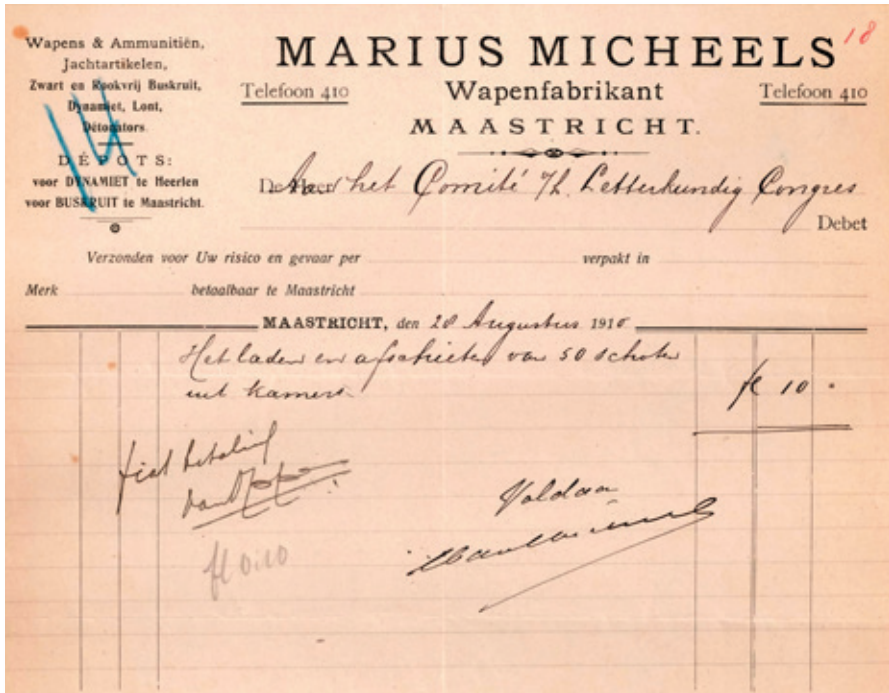 Wapens & Ammunitiën,
Jachtartikelen,
Zwart en Rookvrij Buskruit,
Dynamiet, Lont,
Détonators.
DÉPOTS:
voor DYNAMIET te Heerlen
voor BUSKRUIT te Maastricht.
14
18
MARIUS MICHEELS
Telefoon 410 Wapenfabrikant Telefoon 410
MAASTRICHT.
De Heer Aan het Comité Letterkundig Congres
Debet
Verzonden voor Uw risico en gevaar per verpakt in
Merk betaalbaar te Maastricht
MAASTRICHT, den 28 Augustus 1910
Het laden en afschieten van 50 schoten
uit kamers. fl 10.
fiat betaling
Voldaan
fl 0.10